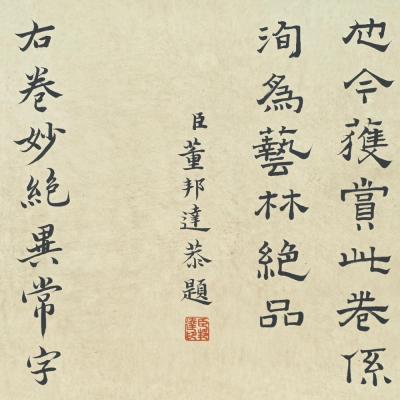 也今獲賞此卷係
洵為藝林絕品
臣董邦達恭題
右卷妙絕異常字